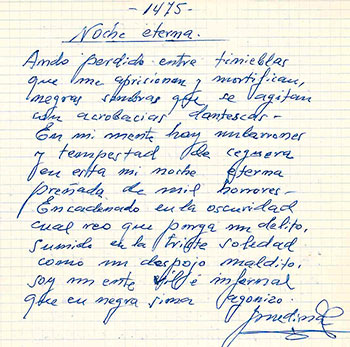 -1475-
Noche eterna.
Ando perdido entre tinieblas
que me aprisionan y mortifican,
negras sombras que se agitan
con acrobacias dantescas-
En mi mente hay nubarrones
y tempestad de ceguera
en esta mi noche eterna
preñada de mil horrores-
Encadenado en la oscuridad
cual reo que purga un delito,
sumido en la triste soledad
como un despojo maldito,
soy un ente vil é infernal
que en negra sima agonizo.